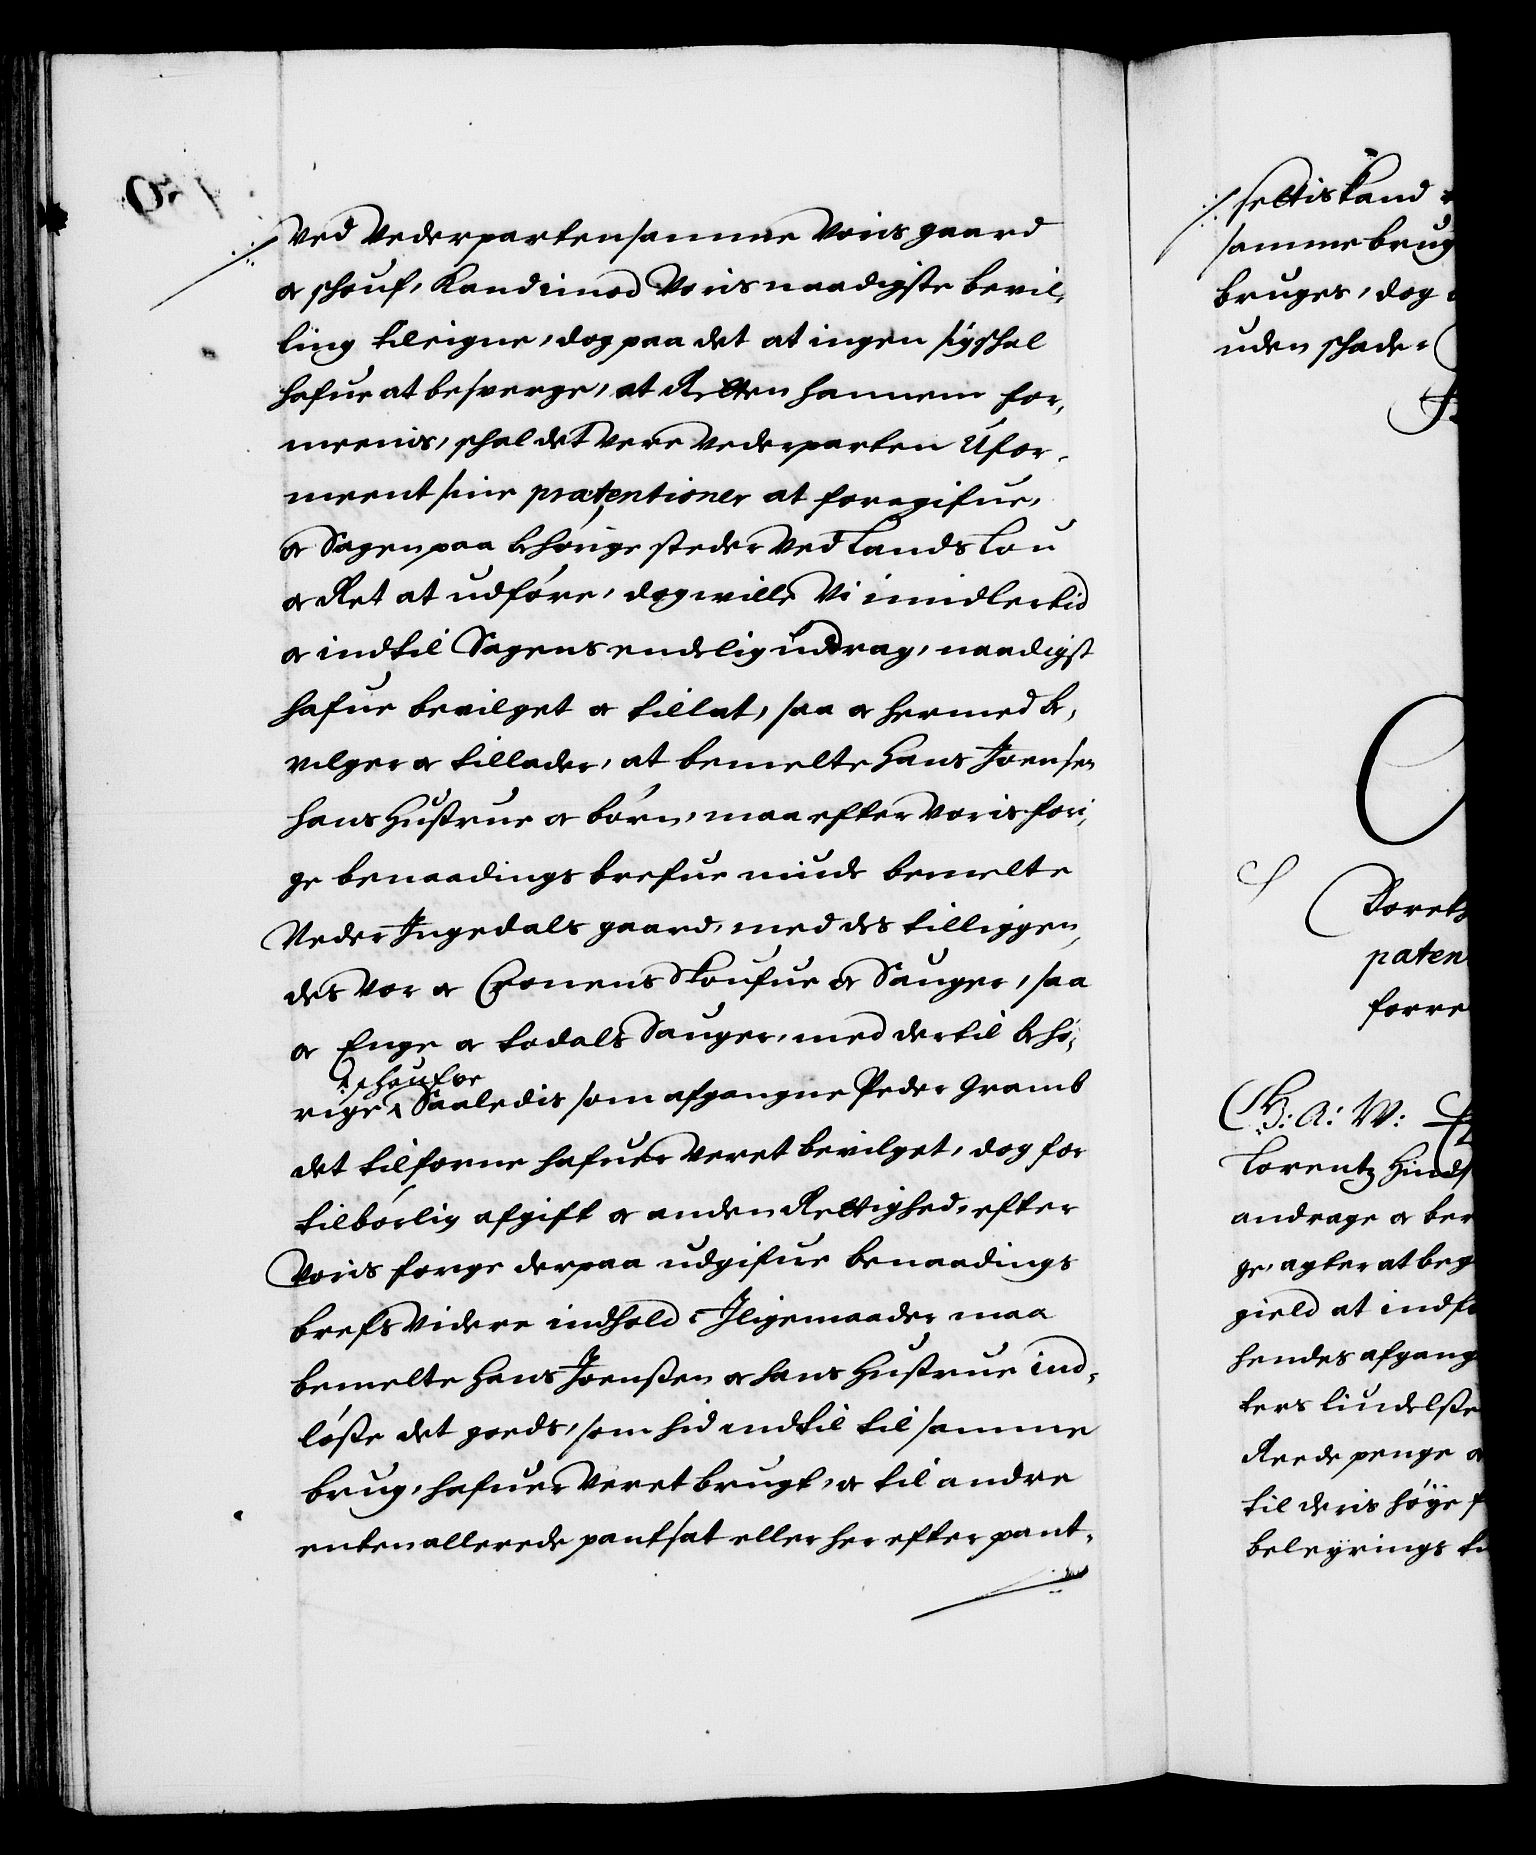 Ved Vederparten samme Voris gaard
oc schouf, Kand imod Voris naadigste bevil,
ling tileigne, dog paa det at ingen sig schal
hafue at besverge, at Retten hannem for,
meenis, schal det Vere Vederparten Ufor-
meent sine prætentioner at foregifue,
oc Sagen paa behörige steder Ved Lands Lou
oc Ret at udföre, dog wille Vi imidlertid
oc indtil Sagens endelig uddrag, naadigst
hafue bevilget oc tillat, saa oc hermed be,
vilger oc tillader, at bemelte Hans Joensen
hans Hustrue oc börn, maa efter Voris fori,
ge benaadings brefue niude bemelte
Neder Ingedals gaard, med des tilliggen,
des Vor oc Cronens Skoufue oc Sauger, saa
oc Enge oc Todals Sauger, med dertil behö,
schoufve
rige Saaledis som afgangne Peder Gramb
det tilforne hafuer Veret bevilget, dog for
tilbörlig afgift oc anden Rettighed, efter
Voris forge derpaa udgifue benaadings
brefs Videre indhold. Iligemaader maa
bemelte Hans Joenssen oc hans Hustrue ind,
löste det goeds, som hid indtil til samme
brug, hafuer Veret brugt, oc til andre
enten allerede pantsat eller her efter pant,
settis kand
samme brug
bruges, dog
uden schade
Doreth
paten
forre
Lorentz Hinds
andrage oc ber
ge, agter at beg
gield at indf
hendes afgang
ters lindelse
Reede penge oc
til deris höye f
beleyrings